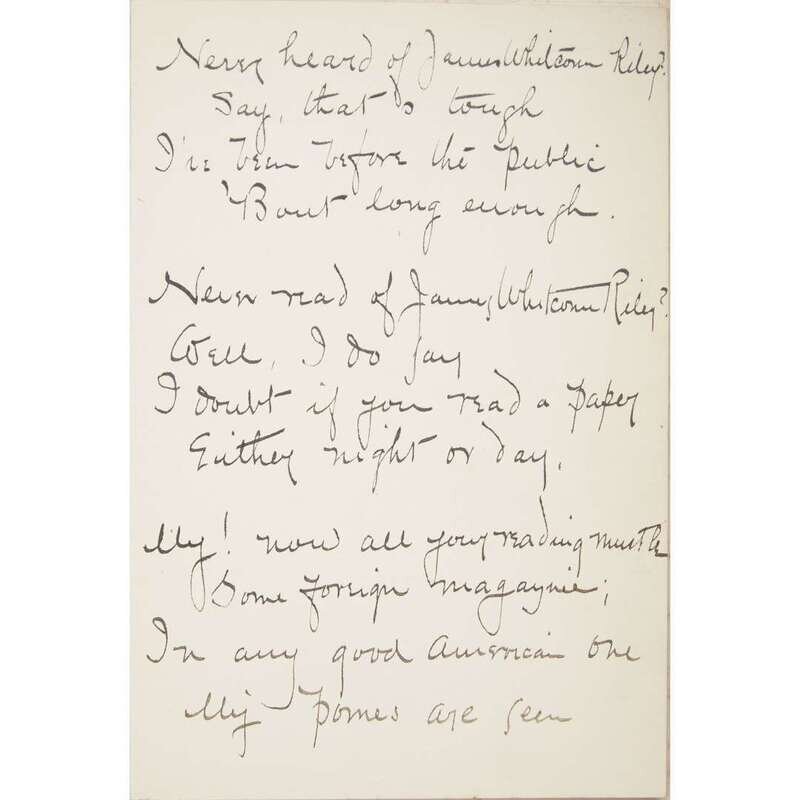 Never heard of James Whitcom Riley?
Say, that's tough
I've been before the public
'Bout long enough.
Never read of James Whitcom Riley?
Well, I do say
I doubt if you read a paper
Eithey night or day.
My! now all your reading must be
Some foreign magazine;
In any good American one
My pomes are seen